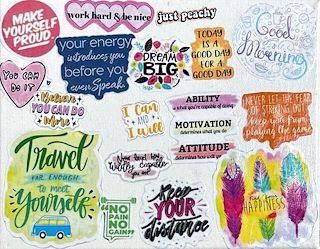 MAKE
YOURSELF
PROUD.
work hard & be nice
just peachy
Good
Morning
your energy
introduces you
before you
even speak.
DREAM
BIG
TODAY
IS A
GOOD DAY
FOR A
GOOD DAY
YOU CAN
DO IT
Believe
YOU CAN DO
More
I Can
AND
I will
ABILITY
is what you're capable of doing
MOTIVATION
determines what you do
ATTITUDE
determines how well you
NEVER LET THE FEAR
OF STRIKING OUT
keep you from
playing the game
Travel
FAR ENOUGH
to meet
Yourself
NO
PAIN
NO
GAIN
Keep
YOUR
distance
HAPPINESS